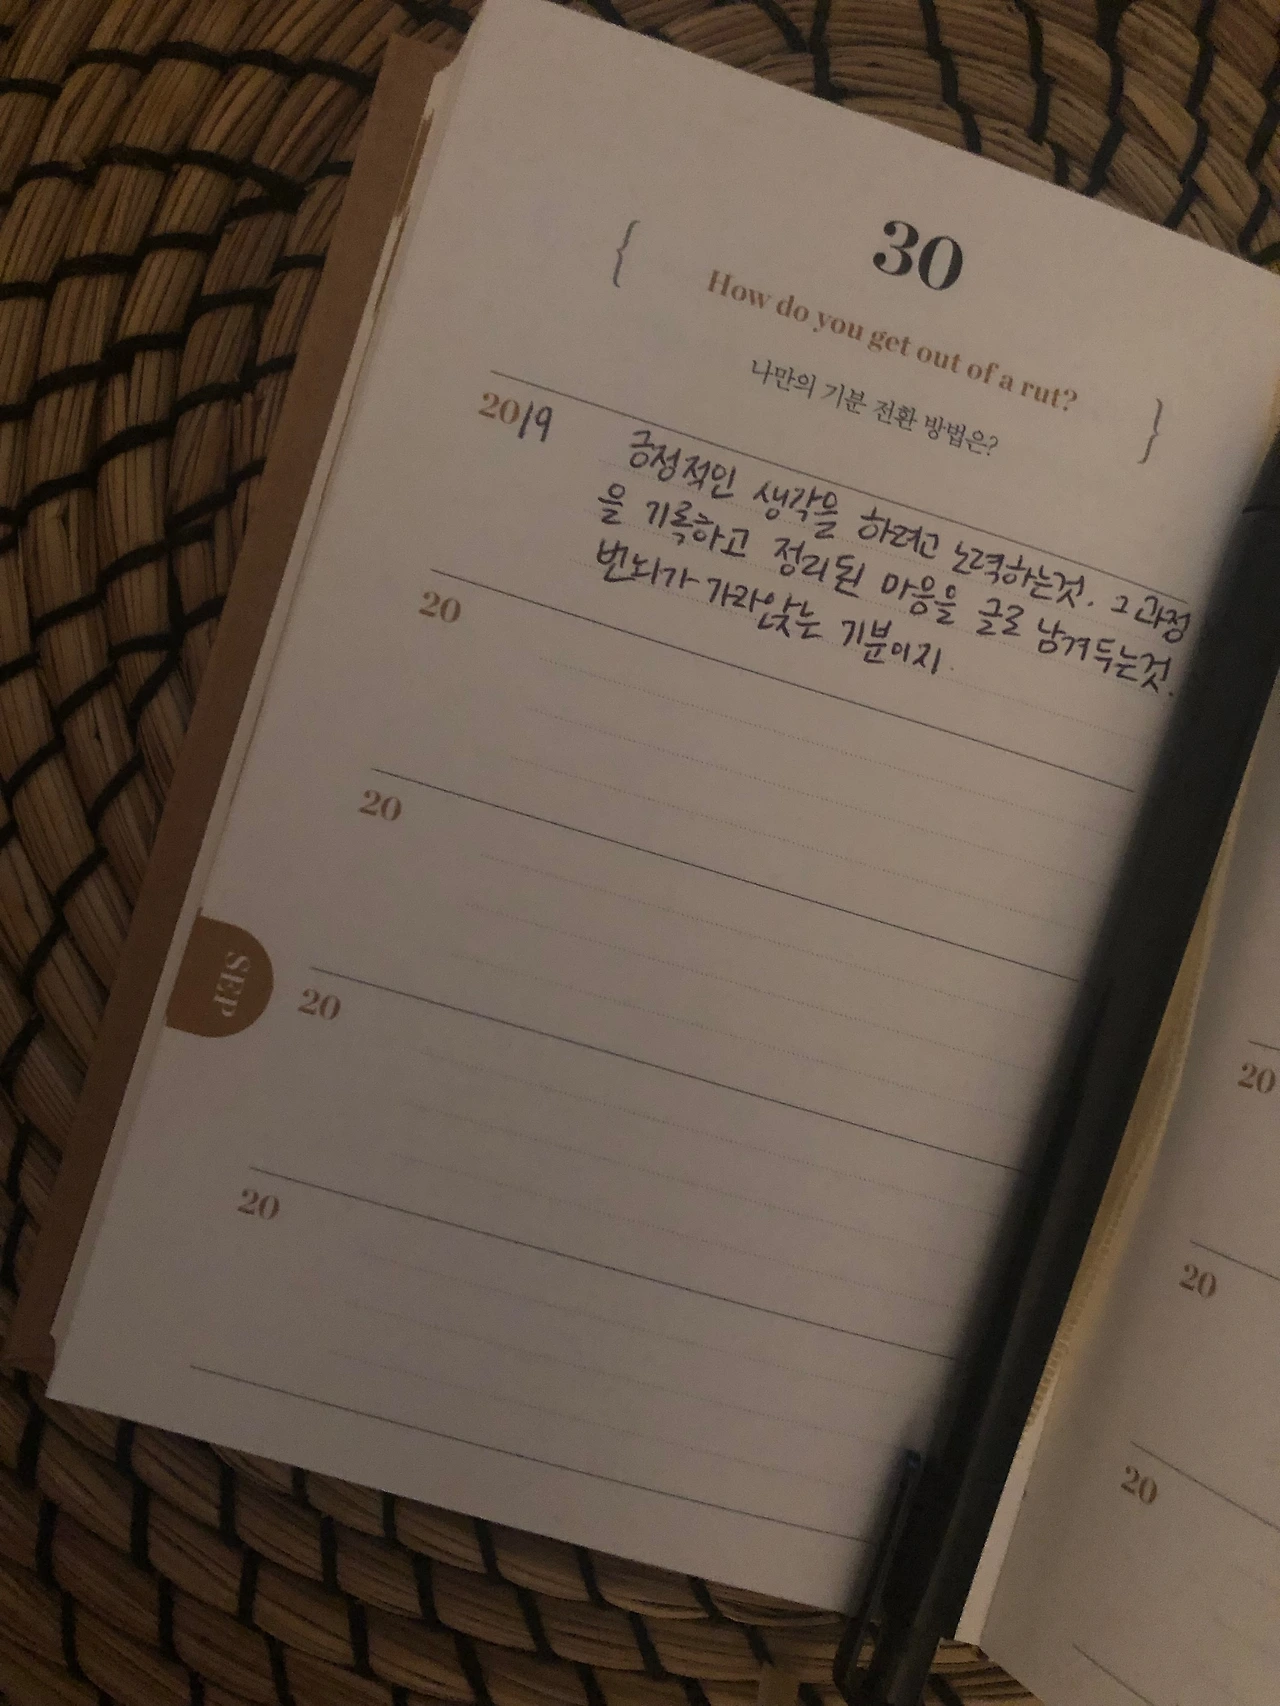 30
{ How do you get out of a rut? }
나만의 기분 전환 방법은?
2019
긍정적인 생각을 하려고 노력하는것. 그 과정
을 기록하고 정리된 마음을 글로 남겨두는것.
번뇌가 가라앉는 기분이지.
20
20
20
20
SEP
20
20
20